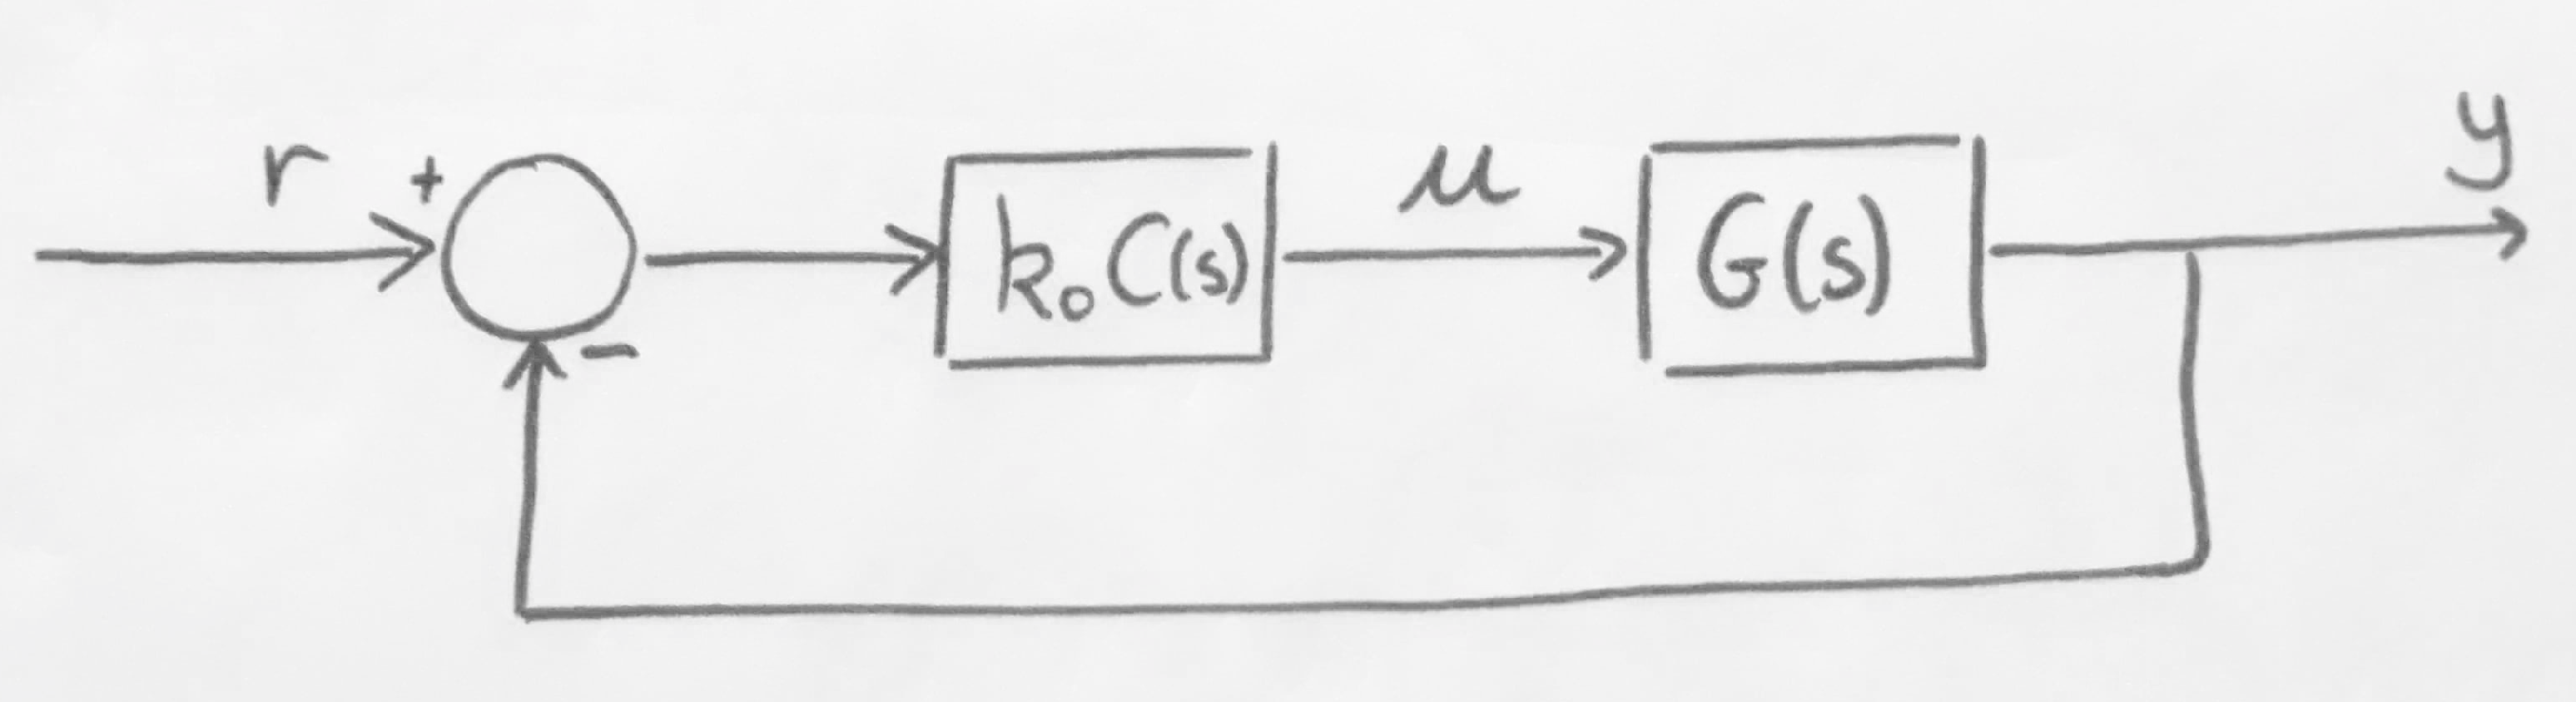 r + k₀C(s) u G(s) y
-